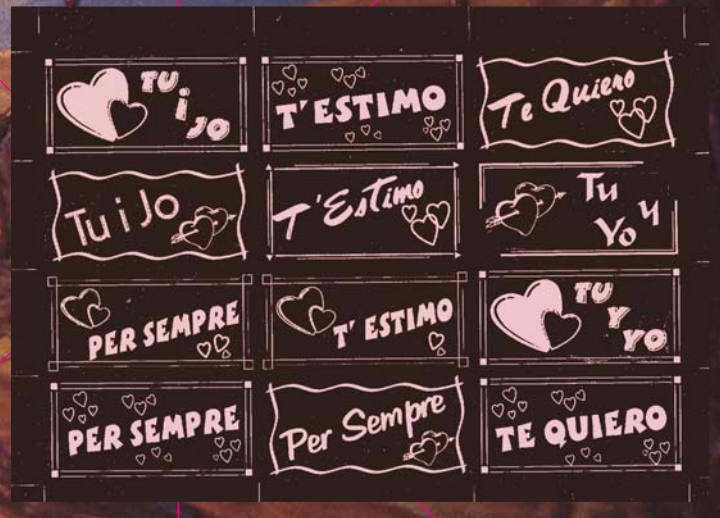 TU
i
JO
T'ESTIMO
Te Quiero
Tu i Jo
T'Estimo
Tu
y
Yo
PER SEMPRE
T' ESTIMO
TU
Y
YO
PER SEMPRE
Per Sempre
TE QUIERO